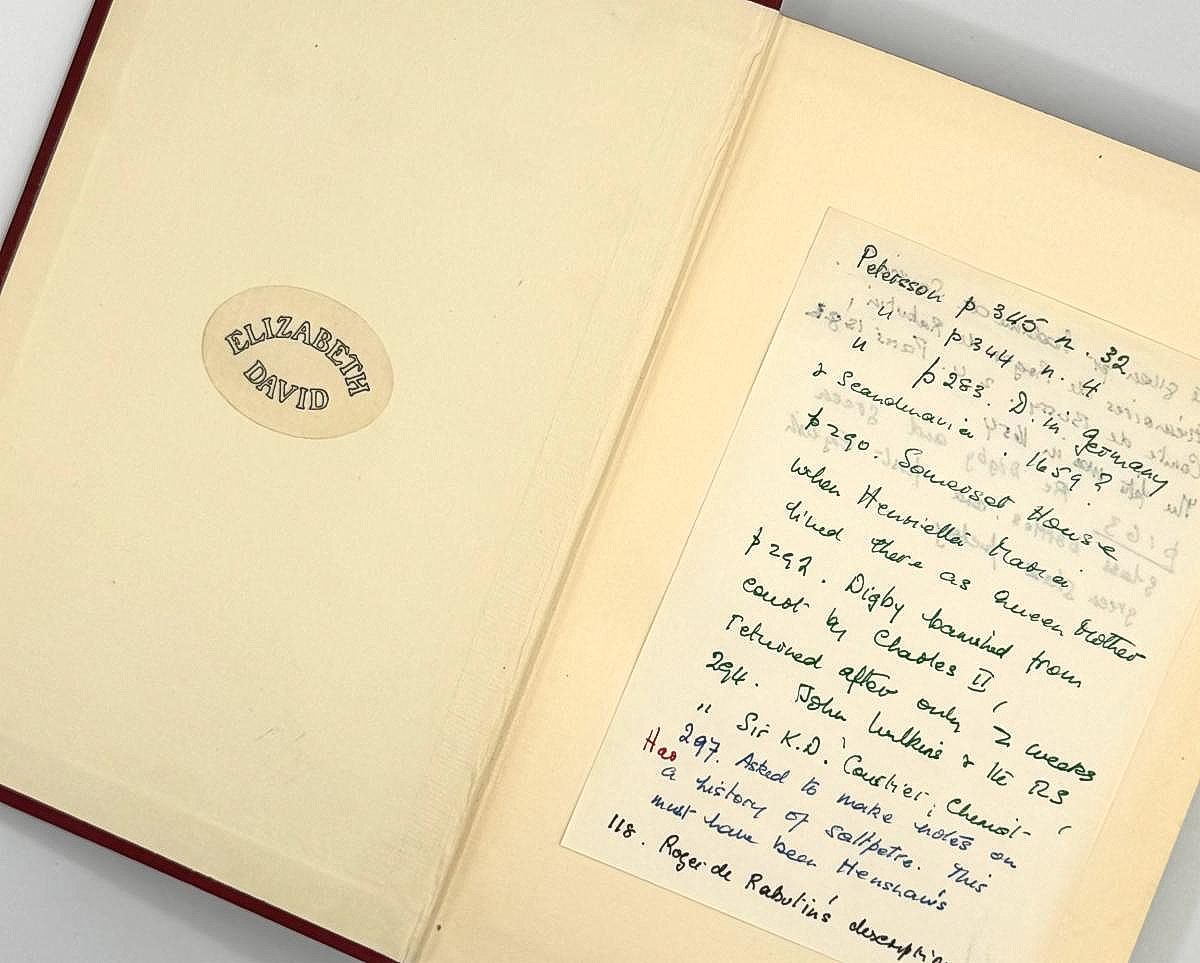 ELIZABETH
DAVID
Petersson p 345 n. 32
" p 344 n. 4
" p 283. D. in Germany
& Scandinavia : 1659?
p 290. Somerset House
when Henrietta Maria
dined there as Queen Mother
p 292. Digby banished from
court by Charles II,
returned after only 2 weeks
294. John Wilkins & the RS
" Sir K.D. 'Courtier, Chemist'
Has 297. Asked to make notes on
a history of saltpetre. This
must have been Henshaw's
118. Roger de Rabutin's description